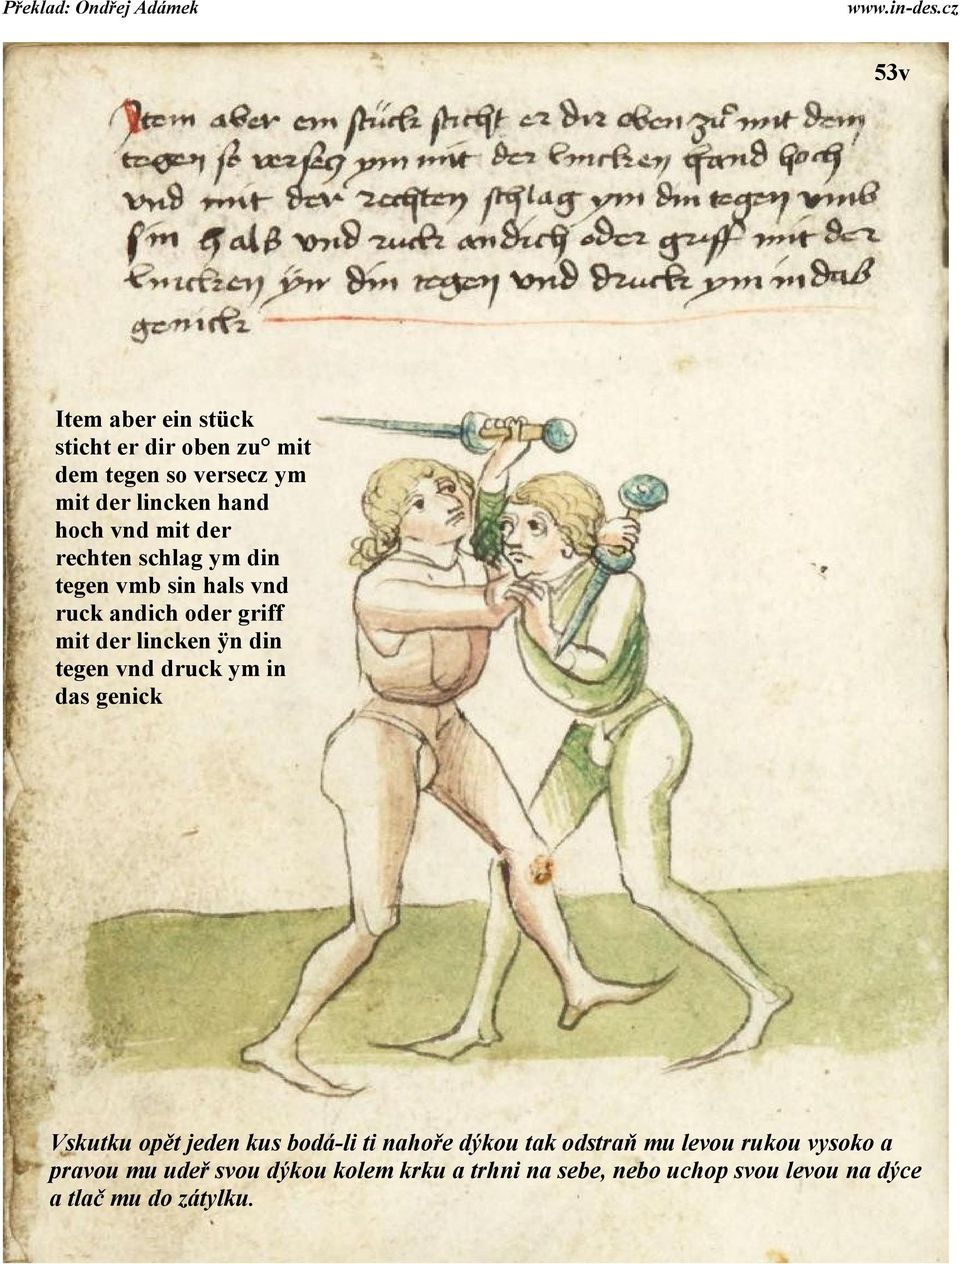 Překlad: Ondřej Adámek
www.in-des.cz
53v
Item aber ein stück sticht er dir oben zů mit dem
tegen so versecz ym mit der lincken hand hoch
vnd mit der rechten schlag ym din tegen vmb
sin hals vnd ruck andich oder griff mit der
lincken ÿn din tegen vnd druck ym in das
genick
Item aber ein stück
sticht er dir oben zu° mit
dem tegen so versecz ym
mit der lincken hand
hoch vnd mit der
rechten schlag ym din
tegen vmb sin hals vnd
ruck andich oder griff
mit der lincken ÿn din
tegen vnd druck ym in
das genick
Vskutku opět jeden kus bodá-li ti nahoře dýkou tak odstraň mu levou rukou vysoko a
pravou mu udeř svou dýkou kolem krku a trhni na sebe, nebo uchop svou levou na dýce
a tlač mu do zátylku.